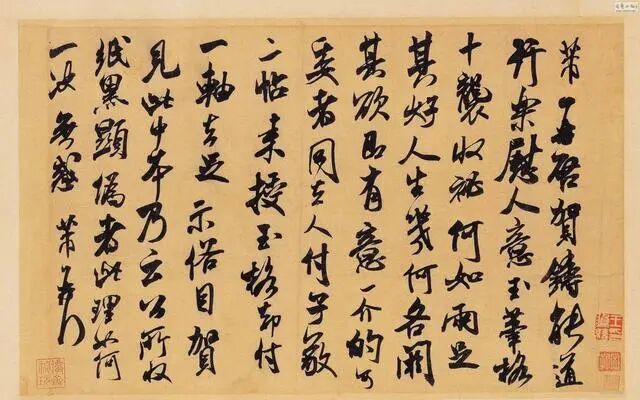 芾一再啓賀鑄能道
行樂慰人意玉筆格
十襲收祕何如兩足
其好人生幾何各闕
其欲即有意一介的可
委者同去人付子敬
二帖來授玉格却付
一軸去足示俗目賀
見此中本乃云公所收
紙黑顯偽者此理如何
一決無惑 芾再行